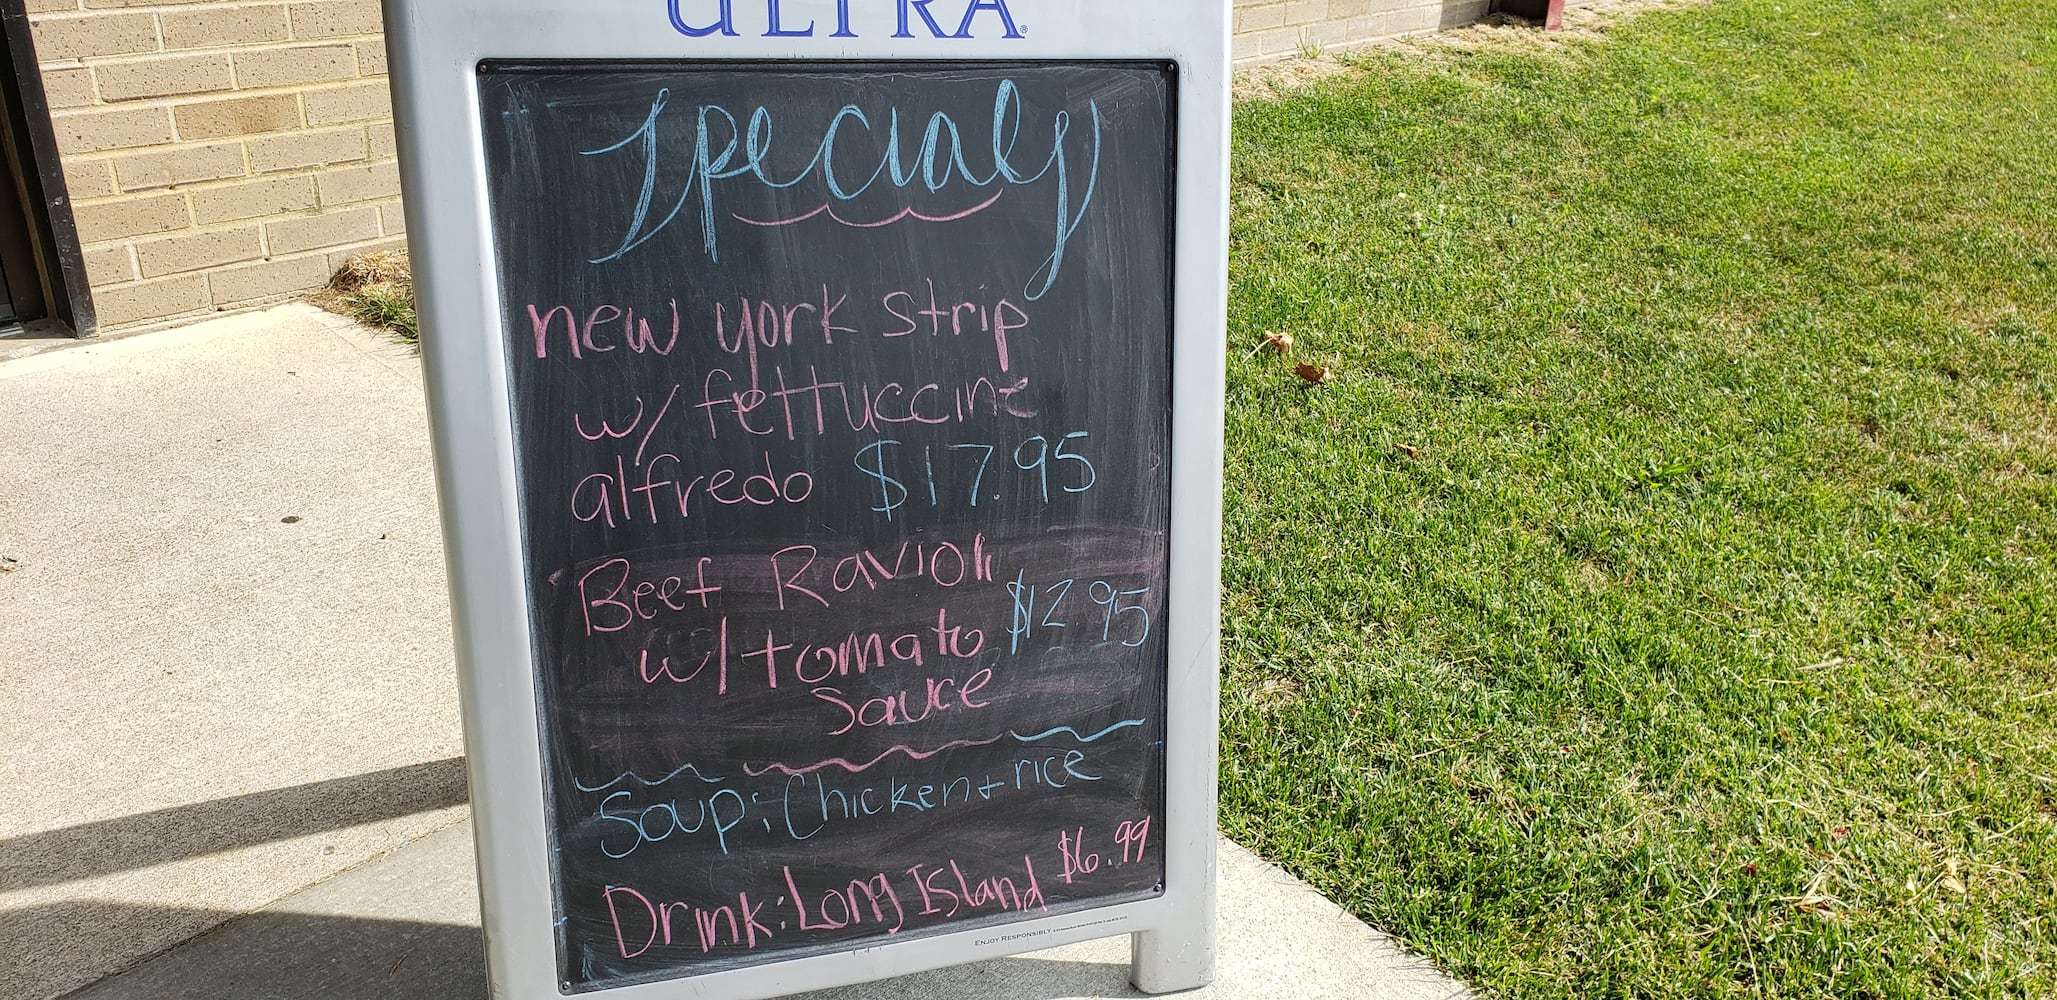 ULTRA
Specials
new york strip
w/ fettuccine
alfredo $17.95
Beef Ravioli
w/ tomato $12.95
sauce
Soup: Chicken + rice
Drink: Long Island $6.99
ENJOY RESPONSIBLY